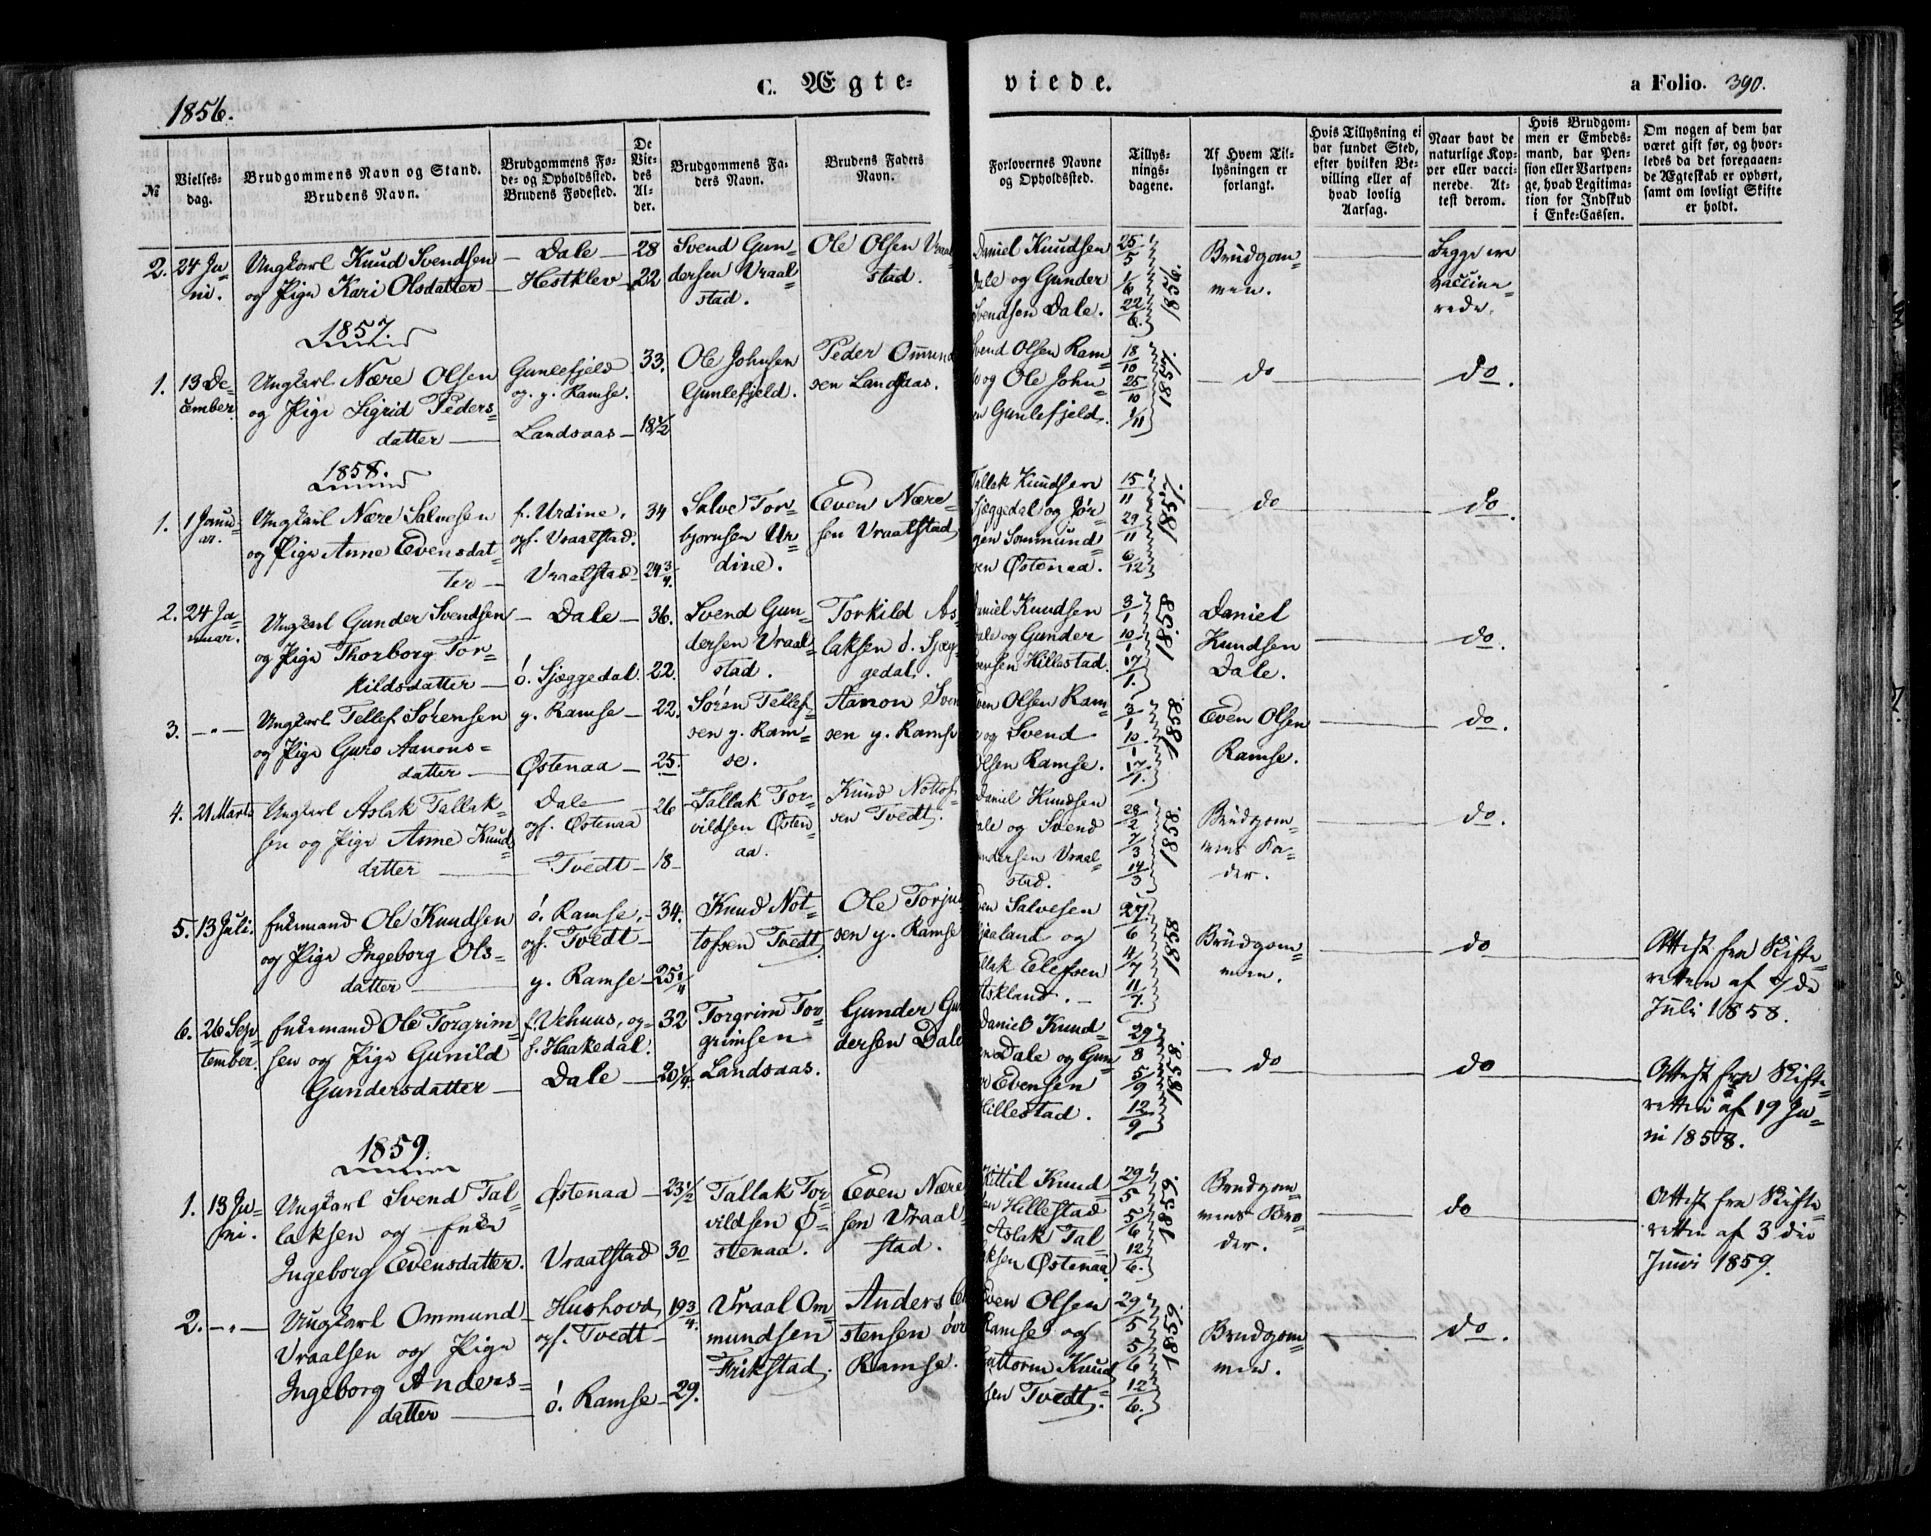 1856.
C. Ægte-
viede.
a Folio. 390.
№
Vielses-
dag.
Brudgommens Navn og Stand.
Brudens Navn.
Brudgommens Fø-
de- og Opholdssted.
Brudens Fødested.
De
Vie-
des
Al-
der.
Brudgommens Fa-
ders Navn.
Brudens Faders
Navn.
Forlovernes Navne
og Opholdssted.
Tillys-
nings-
dagene.
Af Hvem Til-
lysningen er
forlangt.
Hvis Tillysning ei
har fundet Sted,
efter hvilken Be-
villing eller af
hvad lovlig
Aarsag.
Naar havt de
naturlige Kop-
per eller vacci-
nerede. At-
test derom.
Hvis Brudgom-
men er Embeds-
mand, har Pen-
sion eller Vartpen-
ge, hvad Legitima-
tion for Indskud
i Enke-Cassen.
Om nogen af dem har
været gift før, og hvor-
ledes da det foregaaen-
de Ægteskab er ophørt,
samt om lovligt Skifte
er holdt.
2. 24 Ju-
ni.
Ungkarl Knud Svendsen
og Pige Kari Olsdatter
Dale
Hestklev
28
22
Svend Gun-
dersen Vraal-
stad.
Ole Olsen Vraal
stad.
Daniel Knudsen
Dale og Gunder
Svendsen Dale.
25/5
1/6
22/6.
1856.
Brudgom-
men.
Begge ere
vaccine-
rede.
1857.
1. 13 De-
cember
Ungkarl Nære Olsen
og Pige Sigrid Peders-
datter
Gunlefjeld
og. y. Ramse.
Landsaas
33.
18½
Ole Johnsen
Gunlefjeld.
Peder Ommund
sen Landsaas.
Svend Olsen Ram-
og Ole John-
en Gunlefjeld.
18/10
25/10
1/11
1857.
do
do.
1858.
1. 1 Janu-
ar.
Ungkarl Nære Salvesen
og Pige Anne Evensdat-
ter
f. Urdine.
opf. Vraalstad.
Vraalstad
34
24¾
Salve Tor-
bjornsen Ur-
dine.
Even Nære-
sen Vraalstad
Tallak Knudsen
Sjæggedal og Jør-
gen Sommund-
sen Østenaa.
15/11
29/11
6/12
1857.
do
do.
2. 24 Ja-
nuar.
Ungkarl Gunder Svendsen
og Pige Thorborg Tor-
kildsdatter
Dale
ó. Sjæggedal
36.
22.
Svend Gun-
dersen Vraal-
stad.
Torkild As-
laksen ó. Sjæg-
gedal.
Daniel Knudsen
Dale og Gunder
Evensen Hillestad.
3/1
10/1
17/1.
1858.
Daniel
Knudsen
Dale.
do.
3. -"-
Ungkarl Tellef Sørensen
og Pige Guro Aanons-
datter
y. Ramse
Østenaa
22.
25.
Søren Tellef-
sen y. Ram-
se.
Aanon Sven
sen y. Ramse
Even Olsen Ram-
og Svend
Olsen Ramse.
3/1
10/1
17/1.
1858.
Even Olsen
Ramse.
do.
4. 21 Marts
Ungkarl Aslak Tallak-
sen og Pige Anne Knud-
datter
Dale
opf. Østenaa
Tvedt
26
18
Tallak Tor-
vildsen Østen-
aa.
Knud Nottof-
sen Tvedt.
Daniel Knudsen
Dale og Svend
Gundersen Vraal-
stad.
28/2
7/3
14/3
1858.
Brudgom-
mens Fa-
der.
do.
5. 13 Juli.
Enkemand Ole Knudsen
og Pige Ingeborg Ols-
datter
ó. Ramse,
opf. Tvedt
y. Ramse
34.
25¼
Knud Not-
tofsen Tvedt
Ole Torju
sen y. Ramse
Even Salvesen
og
Tallak Elefsen
Askland.
27/6
4/7
11/7.
1858
Brudgom-
men.
do
Attest fra Skifte-
retten af 7 de
Juli 1858.
6. 26 Sep-
tember.
Enkemand Ole Torgrim-
sen og Pige Gunild
Gundersdatter
f. Vehuus, og-
f. Haakedal.
Dale
32
20¼
Torgrim Tor-
grimsen
Landsaas.
Gunder Gun
dersen Dale
Daniel Knud-
en Dale og Gun-
er Evensen
Hillestad.
29/8
5/9
12/9
1858.
do
do
Attest fra Skifte-
retten af 19 Ju-
ni 1858.
1859.
1. 13 Ju-
ni.
Ungkarl Svend Tal-
laksen og Enke
Ingeborg Evensdatter.
Østenaa
Vraalstad
23½
30
Tallak Tor-
vildsen Ø-
stenaa.
Even Nære
sen Vraal-
stad.
Kittil Knud-
sen Hillestad
Aslak Tal-
ksen Østenaa
29/5
5/6
12/6.
1859.
Brudgom-
mens Bro-
der.
do
Attest fra Skifte-
retten af 3 die
Juni 1859.
2. -"-
Ungkarl Ommund
Vraalsen og Pige
Ingeborg Anders-
datter
Hushovd
opf. Tvedt
ó. Ramse
19¾.
29.
Vraal Om-
mundsen
Frikstad.
Anders
stensen övr
Ramse.
Even Olsen
Ramse og
Guttorm Knud
sen Tvedt.
29/5
5/6
12/6.
1859.
Brudgom-
men.
do.